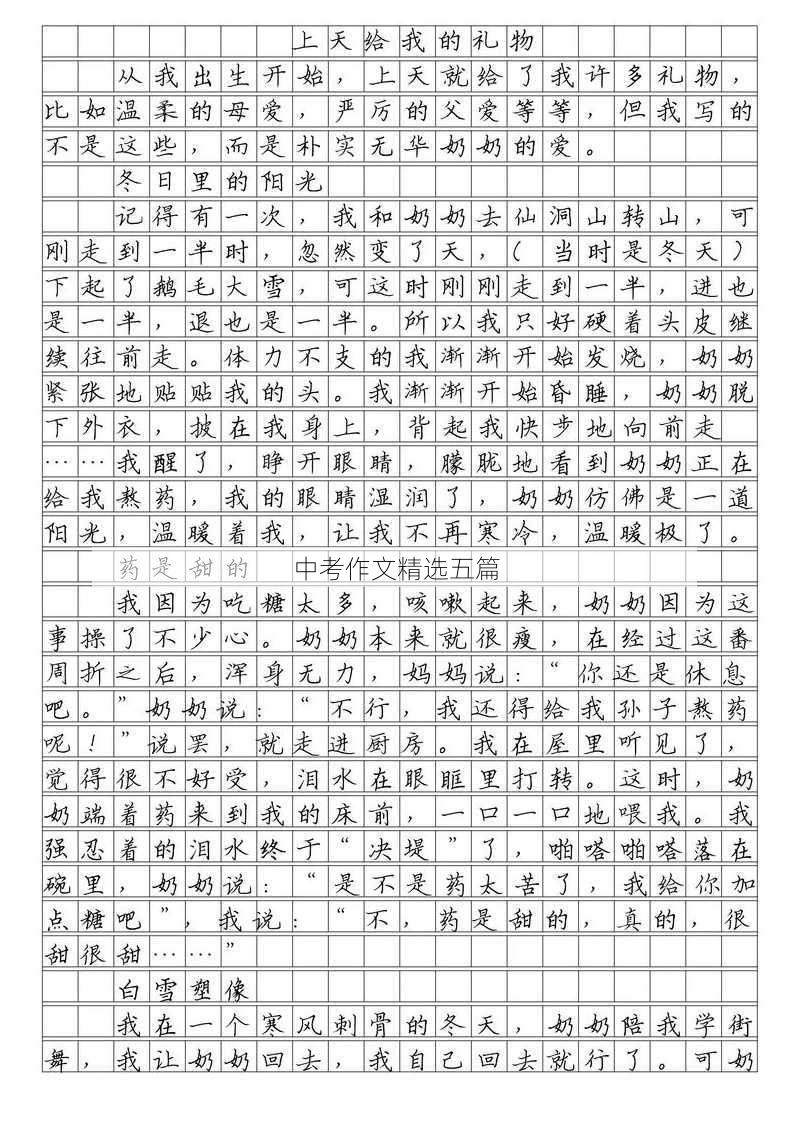 上天给我的礼物
从我出生开始，上天就给了我许多礼物，
比如温柔的母爱，严厉的父爱等等，但我写的
不是这些，而是朴实无华奶奶的爱。
冬日里的阳光
记得有一次，我和奶奶去仙洞山转山，可
刚走到一半时，忽然变了天，（当时是冬天）
下起了鹅毛大雪，可这时刚刚走到一半，进也
是一半，退也是一半。所以我只好硬着头皮继
续往前走。体力不支的我渐渐开始发烧，奶奶
紧张地贴贴我的头。我渐渐开始昏睡，奶奶脱
下外衣，披在我身上，背起我快步地向前走
……我醒了，睁开眼睛，朦胧地看到奶奶正在
给我熬药，我的眼睛湿润了，奶奶仿佛是一道
阳光，温暖着我，让我不再寒冷，温暖极了。
药是甜的 中考作文精选五篇
我因为吃糖太多，咳嗽起来，奶奶因为这
事操了不少心。奶奶本来就很瘦，在经过这番
周折之后，浑身无力，妈妈说：“你还是休息
吧。”奶奶说：“不行，我还得给我孙子熬药
呢！”说罢，就走进厨房。我在屋里听见了，
觉得很不好受，泪水在眼眶里打转。这时，奶
奶端着药来到我的床前，一口一口地喂我。我
强忍着的泪水终于“决堤”了，啪嗒啪嗒落在
碗里，奶奶说：“是不是药太苦了，我给你加
点糖吧”，我说：“不，药是甜的，真的，很
甜很甜……”
白雪塑像
我在一个寒风刺骨的冬天，奶奶陪我学街
舞，我让奶奶回去，我自己回去就行了。可奶